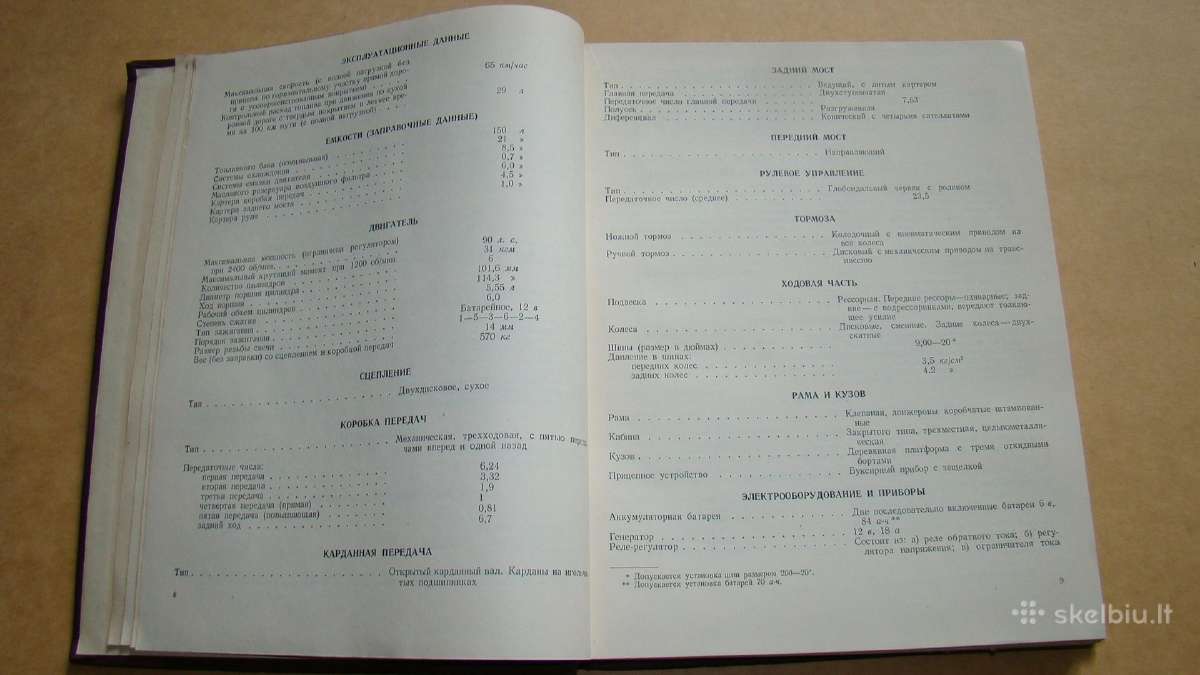 ЭКСПЛУАТАЦИОННЫЕ ДАННЫЕ
Максимальная скорость (с полной нагрузкой без
прицепа по горизонтальному участку прямой доро-
ги с усовершенствованным покрытием) . . . . . 65 км/час
Контрольный расход топлива при движении по сухой
ровной дороге с твердым покрытием в летнее вре-
мя на 100 км пути (с полной нагрузкой) 29 л
ЕМКОСТИ (ЗАПРАВОЧНЫЕ ДАННЫЕ)
Топливного бака . . . . 150 л
Системы охлаждения . . . . 21 »
Системы смазки двигателя . . . . 8,5 »
Масляного резервуара воздушного фильтра . . . . 0,7 »
Картера коробки передач . . . . 6,0 »
Картера заднего моста . . . . 4,5 »
Картера руля . . . . 1,0 »
ДВИГАТЕЛЬ
Максимальная мощность (ограничена регулятором)
при 2400 об/мин. . . . . 90 л. с.
Максимальный крутящий момент при 1200 об/мин. 31 кгм
Количество цилиндров . . . . 6
Диаметр поршня цилиндра . . . . 101,6 мм
Ход поршня . . . . 114,3 »
Рабочий объем цилиндров . . . . 5,55 л
Степень сжатия . . . . 6,0
Тип зажигания . . . . Батарейное, 12 в
Порядок зажигания . . . . 1—5—3—6—2—4
Размер резьбы свечи . . . . 14 мм
Вес (без заправки) со сцеплением и коробкой передач 570 кг
СЦЕПЛЕНИЕ
Тип . . . . Двухдисковое, сухое
КОРОБКА ПЕРЕДАЧ
Тип . . . . Механическая, трехходовая, с пятью переда-
чами вперед и одной назад
Передаточные числа:
первая передача . . . . 6,24
вторая передача . . . . 3,32
третья передача . . . . 1,9
четвертая передача (прямая) . . . . 1
пятая передача (повышающая) . . . . 0,81
задний ход . . . . 6,7
КАРДАННАЯ ПЕРЕДАЧА
Тип . . . . Открытый карданный вал. Карданы на игольча-
тых подшипниках
8
ЗАДНИЙ МОСТ
Тип . . . . Ведущий, с литым картером
Главная передача . . . . Двухступенчатая
Передаточное число главной передачи . . . . 7,63
Полуось . . . . Разгруженная
Диференциал . . . . Конический с четырьмя сателлитами
ПЕРЕДНИЙ МОСТ
Тип . . . . Направляющий
РУЛЕВОЕ УПРАВЛЕНИЕ
Тип . . . . Глобоидальный червяк с роликом
Передаточное число (среднее) . . . . 23,5
ТОРМОЗА
Ножной тормоз . . . . Колодочный с пневматическим приводом на
все колеса
Ручной тормоз . . . . Дисковый с механическим приводом на транс-
миссию
ХОДОВАЯ ЧАСТЬ
Подвеска . . . . Рессорная. Передние рессоры — одинарные; зад-
ние — с подрессорниками, передают толкаю-
щее усилие
Колеса . . . . Дисковые, сменные. Задние колеса — двух-
скатные
Шины (размер в дюймах) . . . . 9,00—20*
Давление в шинах:
передних колес . . . . 3,5 кг/см²
задних колес . . . . 4,2 »
РАМА И КУЗОВ
Рама . . . . Клепаная, лонжероны коробчатые штампован-
ные
Кабина . . . . Закрытого типа, трехместная, цельнометалли-
ческая
Кузов . . . . Деревянная платформа с тремя откидными
бортами
Прицепное устройство . . . . Буксирный прибор с защелкой
ЭЛЕКТРООБОРУДОВАНИЕ И ПРИБОРЫ
Аккумуляторная батарея . . . . Две последовательно включенные батареи 6 в,
84 а-ч**
Генератор . . . . 12 в, 18 а
Реле-регулятор . . . . Состоит из: а) реле обратного тока; б) регу-
лятора напряжения; в) ограничителя тока
* Допускается установка шин размером 260—20".
** Допускается установка батарей 70 а-ч.
9
skelbiu.lt